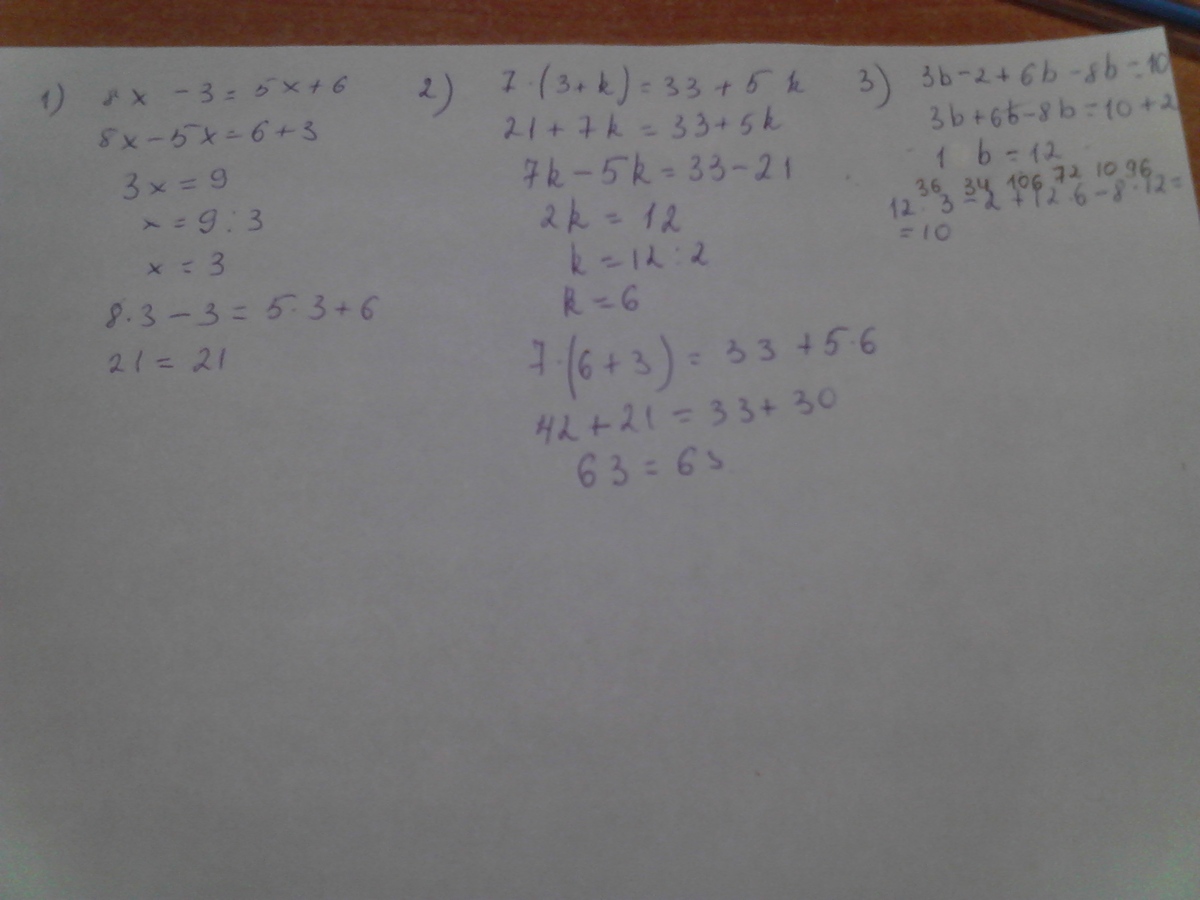 1)
8x - 3 = 5x + 6
8x - 5x = 6 + 3
3x = 9
x = 9 : 3
x = 3
8 · 3 - 3 = 5 · 3 + 6
21 = 21
2)
7 · (3 + k) = 33 + 5 k
21 + 7k = 33 + 5k
7k - 5k = 33 - 21
2k = 12
k = 12 : 2
k = 6
7 · (6 + 3) = 33 + 5 · 6
42 + 21 = 33 + 30
63 = 63
3)
3b - 2 + 6b - 8b = 10
3b + 6b - 8b = 10 + 2
1 b = 12
36 34 106 72 10 96
12 · 3 - 2 + 12 · 6 - 8 · 12 =
= 10